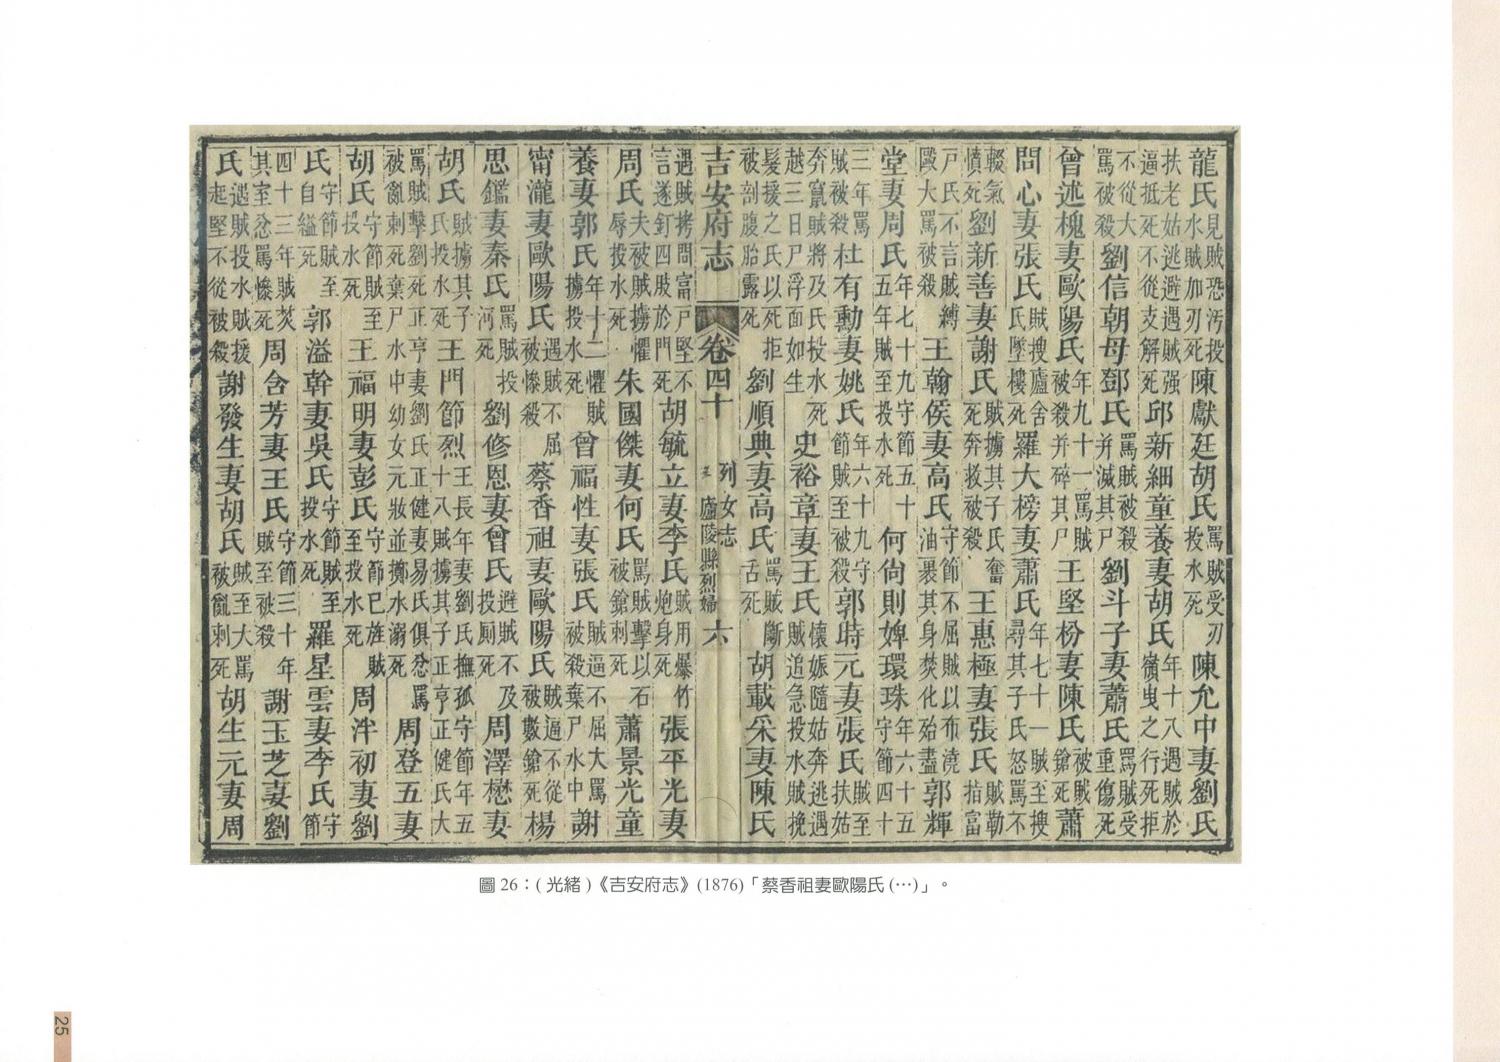 龍氏見賊恐汚投水賊加刃死陳獻廷胡氏罵賊受刃投水死陳允中妻劉氏
扶老姑逃避遇賊强逼抵死不從支解死邱新細童養妻胡氏年十八遇賊於嶺曳之行死拒
不從大罵被殺劉信朝母鄧氏罵賊被殺并滅其尸劉斗子妻蕭氏罵賊受重傷死
曾述槐妻歐陽氏年九十一罵賊被殺并碎其尸王堅枌妻陳氏被賊鎗死蕭
問心妻張氏賊搜廬舍氏墜樓死羅大榜妻蕭氏年七十一賊至搜尋其子氏怒罵不
輟氣憤死劉新善妻謝氏賊擄其子氏奮死奔救被殺王惠極妻張氏賊勒掯富
戸氏不言賊縛毆大罵被殺王翰俟妻高氏守節不屈賊以布澆油裹其身焚化殆盡郭輝
堂妻周氏年七十九守節五十五年賊至投水死何尙則婢環珠年六十五守節四十
三年罵賊被殺杜有勳妻姚氏年六十九守節賊至被殺郭時元妻張氏賊至扶姑
奔竄賊將及氏投水死越三日尸浮面如生史裕章妻王氏懷娠隨姑奔逃遇賊追急投水賊挽
髮援之氏以死拒被剖腹胎露死劉順典妻高氏罵賊斷舌死胡載采妻陳氏
吉安府志 卷四十 列女志 廬陵縣烈婦 六
遇賊拷問富戸堅不言遂釘四肢於門死胡毓立妻李氏賊用爆竹炮身死張平光妻
周氏夫被賊擄懼辱投水死朱國傑妻何氏罵賊擊以石被鎗刺死蕭景光童
養妻郭氏年十二懼賊擄投水死曾福性妻張氏賊逼不屈大罵被殺棄尸水中謝
甯瀧妻歐陽氏遇賊不屈被慘殺蔡香祖妻歐陽氏賊逼不從被數鎗死楊
思鑑妻秦氏罵賊投河死劉修恩妻曾氏避賊不及投厠死周澤懋妻
胡氏賊擄其子氏投水死王門節烈王長年妻劉氏撫孤守節年五十八賊擄其子正亨正健氏大
罵賊擊劉死正亨妻劉氏正健妻易氏俱忿罵被亂刺死棄尸水中幼女元妝並擲水溺死周登五妻
胡氏守節賊至投水死王福明妻彭氏守節已旌賊至投水死周泮初妻劉
氏守節賊至自縊死郭溢幹妻吳氏守節賊至投水死羅星雲妻李氏守節
四十三年賊焚其室忿罵慘死周含芳妻王氏守節三十年賊至被殺謝玉芝妻劉
氏遇賊投水賊援起堅不從被殺謝發生妻胡氏賊至大罵被亂刺死胡生元妻周
圖 26：( 光緒 )《吉安府志》(1876)「蔡香祖妻歐陽氏 (…)」。
25